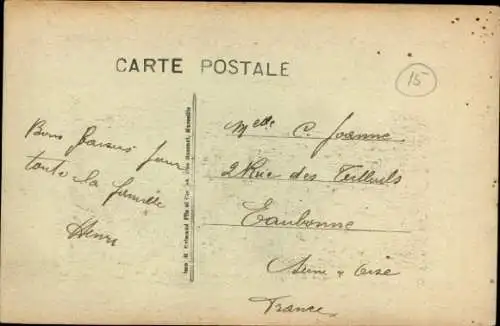 CARTE POSTALE
15
Bons Baisers pour
toute la famille
Henri
Melle C. Jeanne
2 Rue des Tilleuls
Eaubonne
Seine & Oise
France